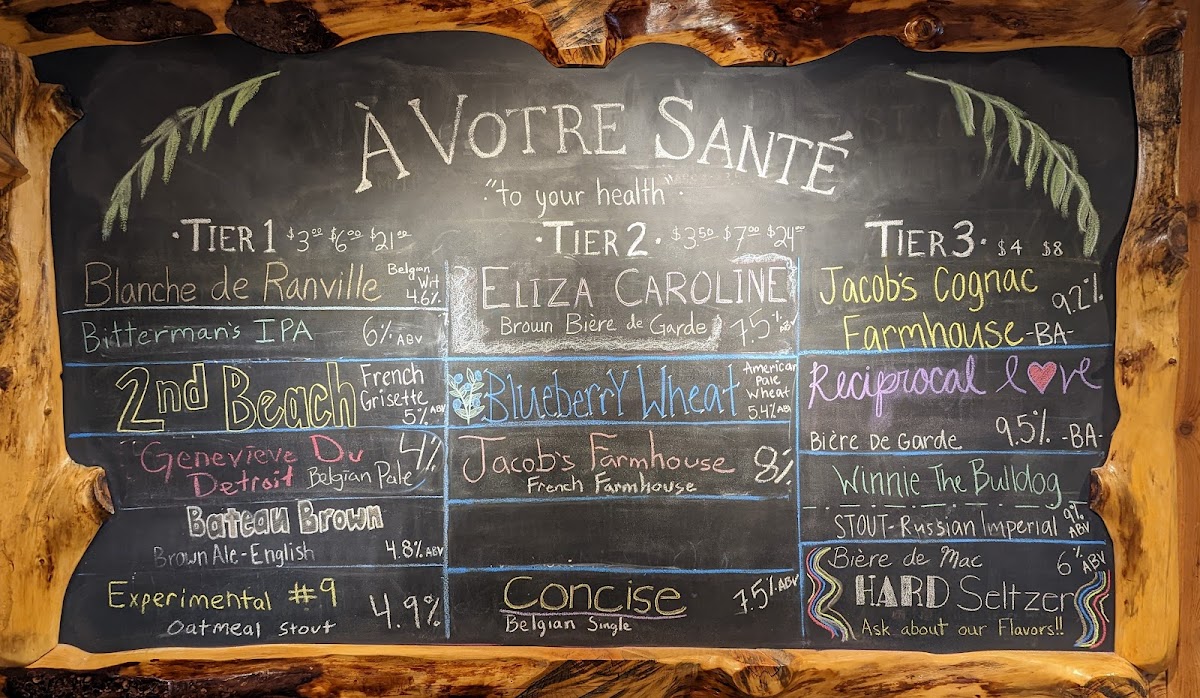 À VOTRE SANTÉ
"to your health".
·TIER 1 $3⁰⁰ $6⁰⁰ $21⁰⁰
Blanche de Ranville
Belgian
Wit
4.6%
Bitterman's IPA 6% ABV
2nd Beach
French
Grisette
5% ABV
Genevieve Du
Detroit
Belgian Pale
4%
Bateau Brown
Brown Ale-English 4.8% ABV
Experimental #9
Oatmeal Stout
4.9%
·TIER 2· $3.50 $7⁰⁰ $24⁰⁰
ELIZA CAROLINE
Brown Bière de Garde 7.5% ABV
Blueberry Wheat
American
Pale
Wheat
5.4% ABV
Jacob's Farmhouse
French Farmhouse
8%
Concise
Belgian Single
7.5% ABV
TIER 3· $4 $8
Jacob's Cognac
Farmhouse -BA-
9.2%
Reciprocal love
Bière De Garde 9.5% -BA-
Winnie The Bulldog
STOUT-Russian Imperial 9% ABV
Bière de Mac 6% ABV
HARD Seltzer
Ask about our Flavors!!